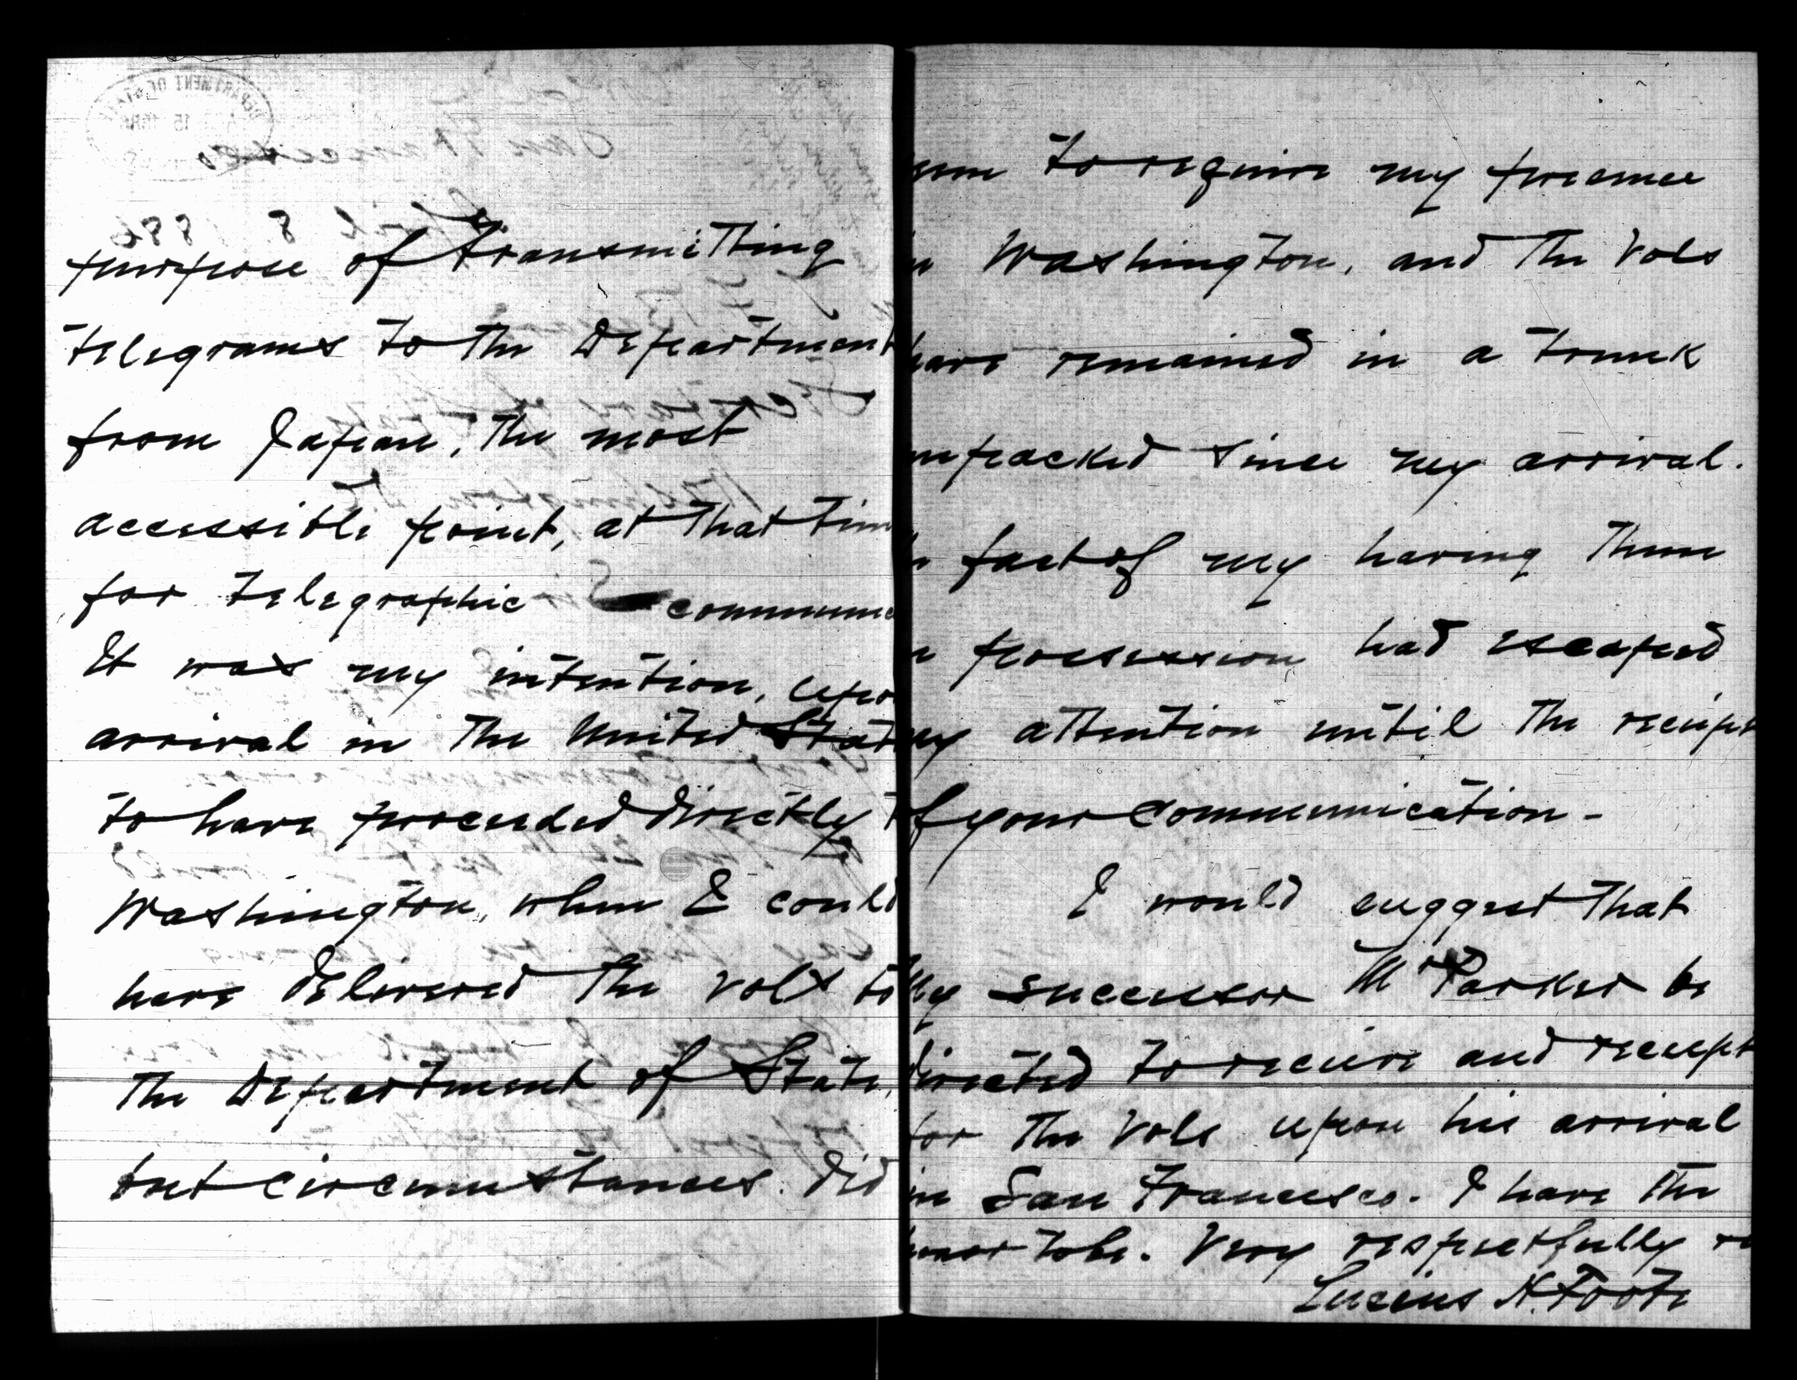 purpose of transmitting
telegrams to the Department
from Japan, the most
acessible point, at that tim
for telegraphic communic
It was my intention, upon
arrival in the United Stat
to have proceeded directly t
Washington, when I could
have delivered the vols to
the Department of State,
but circumstances did
seem to require my presence
in Washington, and the Vols
have remained in a trunk
unpacked since my arrival.
fact of my having them
possession had escaped
my attention until the receipt
of your communication -
I would suggest that
my successor Mr Parker be
directed to receive and receipt
for the Vols upon his arrival
in San Francisco. I have the
honor to be. Very respectfully
Lucius H. Foote